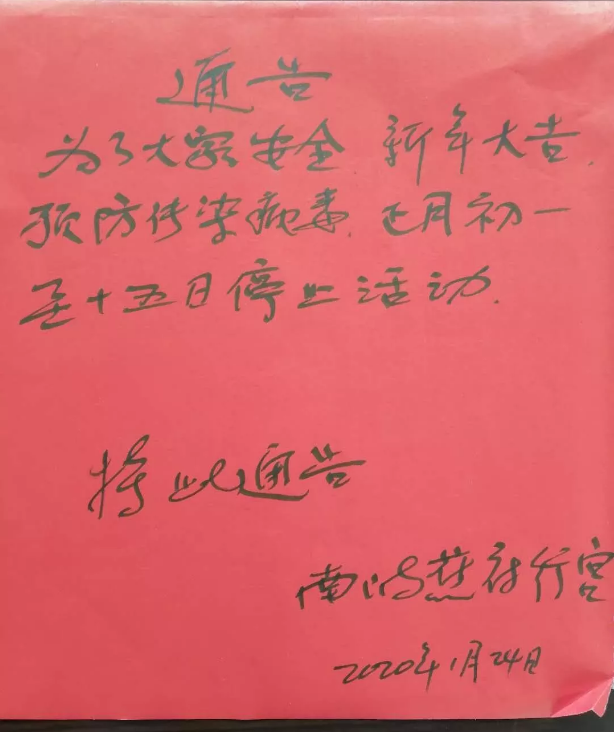 通告
为了大家安全 新年大吉.
预防传染病毒.正月初一
至十五日停止活动.
特此通告
南 蕉府行宫
2020年1月24日